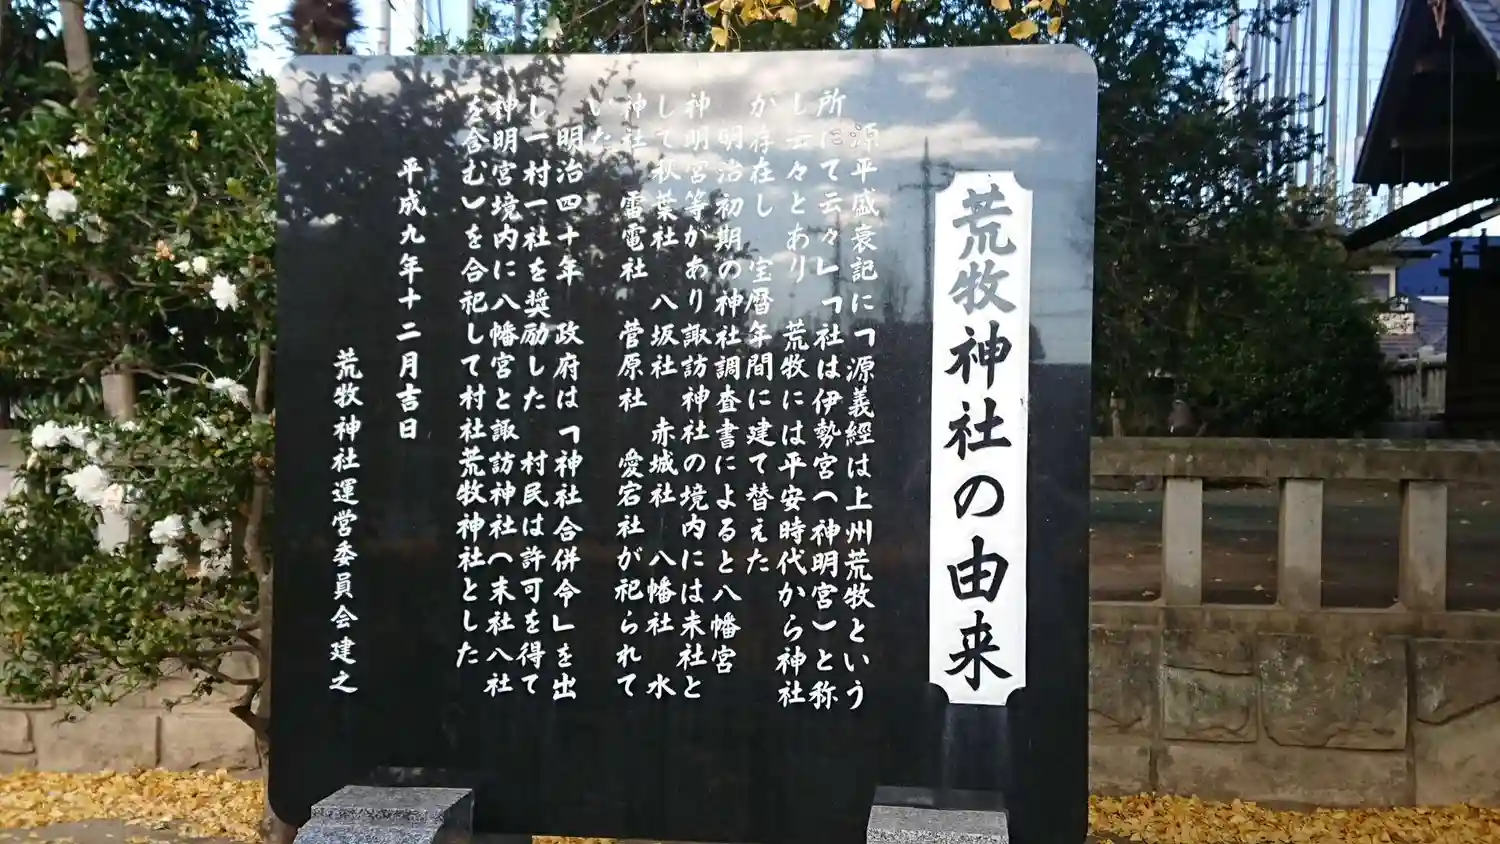 荒牧神社の由来
源平盛衰記に「源義經は上州荒牧という
所にて云々」「社は伊勢宮(神明宮)と称
し云々とあり 荒牧には平安時代から神社
が存在し 宝暦年間に建て替えた
明治初期の神社調査書によると八幡宮
神明宮等があり諏訪神社の境内には末社と
して秋葉社 八坂社 赤城社 八幡社 水
神社 雷電社 菅原社 愛宕社が祀られて
いた
明治四十年 政府は「神社合併令」を出
し一村一社を奨励した 村民は許可を得て
神明宮境内に八幡宮と諏訪神社(末社八社
を含む)を合祀して村社荒牧神社とした
平成九年十二月吉日
荒牧神社運営委員会建之